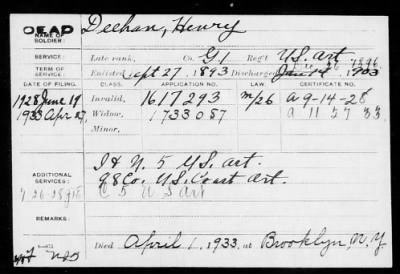 DEAD
NAME OF SOLDIER: Deehan, Henry
SERVICE: Late rank, Co. G 1 Reg't U.S. Art
Dec 26 1896
TERM OF SERVICE: Enlisted Sept 27, 1893 Discharged Jan 14, 1903
DATE OF FILING. CLASS. APPLICATION NO. LAW. CERTIFICATE NO.
1928 June 19 Invalid, 1617293 M/26 a 9-14-28
1933 Apr 17 Widow, 1733087 a 11 27 33
Minor,
ADDITIONAL SERVICES: I & N. 5 U.S. Art.
98 Co. U.S. Coast Art.
C 5 U S Art
REMARKS:
Died April 1, 1933, at Brooklyn, N.Y.